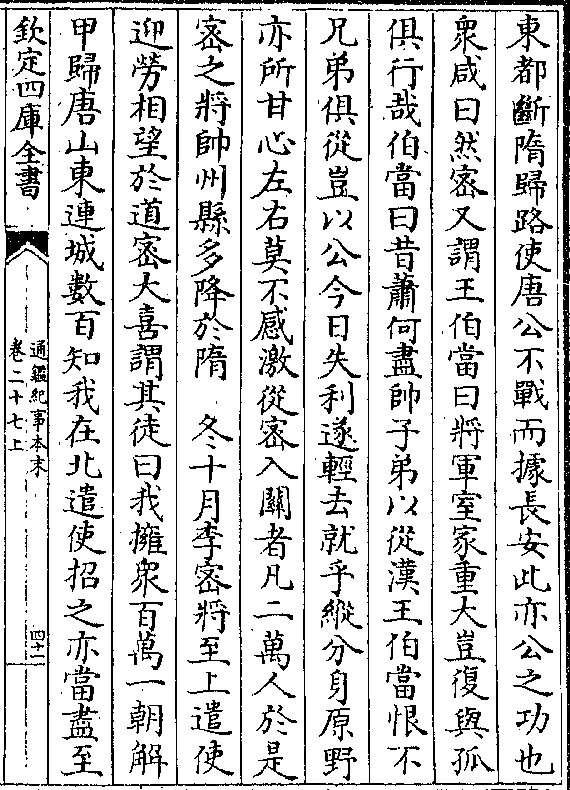 東都斷隋歸路使唐公不戰而據長安此亦公之功也
衆咸曰然密又謂王伯當曰將軍室家重大豈復與孤
俱行哉伯當曰昔蕭何盡帥子弟以從漢王伯當恨不
兄弟俱從豈以公今日失利遂輕去就乎縱分身原野
亦所甘心左右莫不感激從密入關者凡二萬人於是
密之將帥州縣多降於隋　冬十月李密將至上遣使
迎勞相望於道密大喜謂其徒曰我擁衆百萬一朝解
甲歸唐山東連城數百知我在北遣使招之亦當盡至
欽定四庫全書
通鑑紀事本末
卷二十七上
四十一